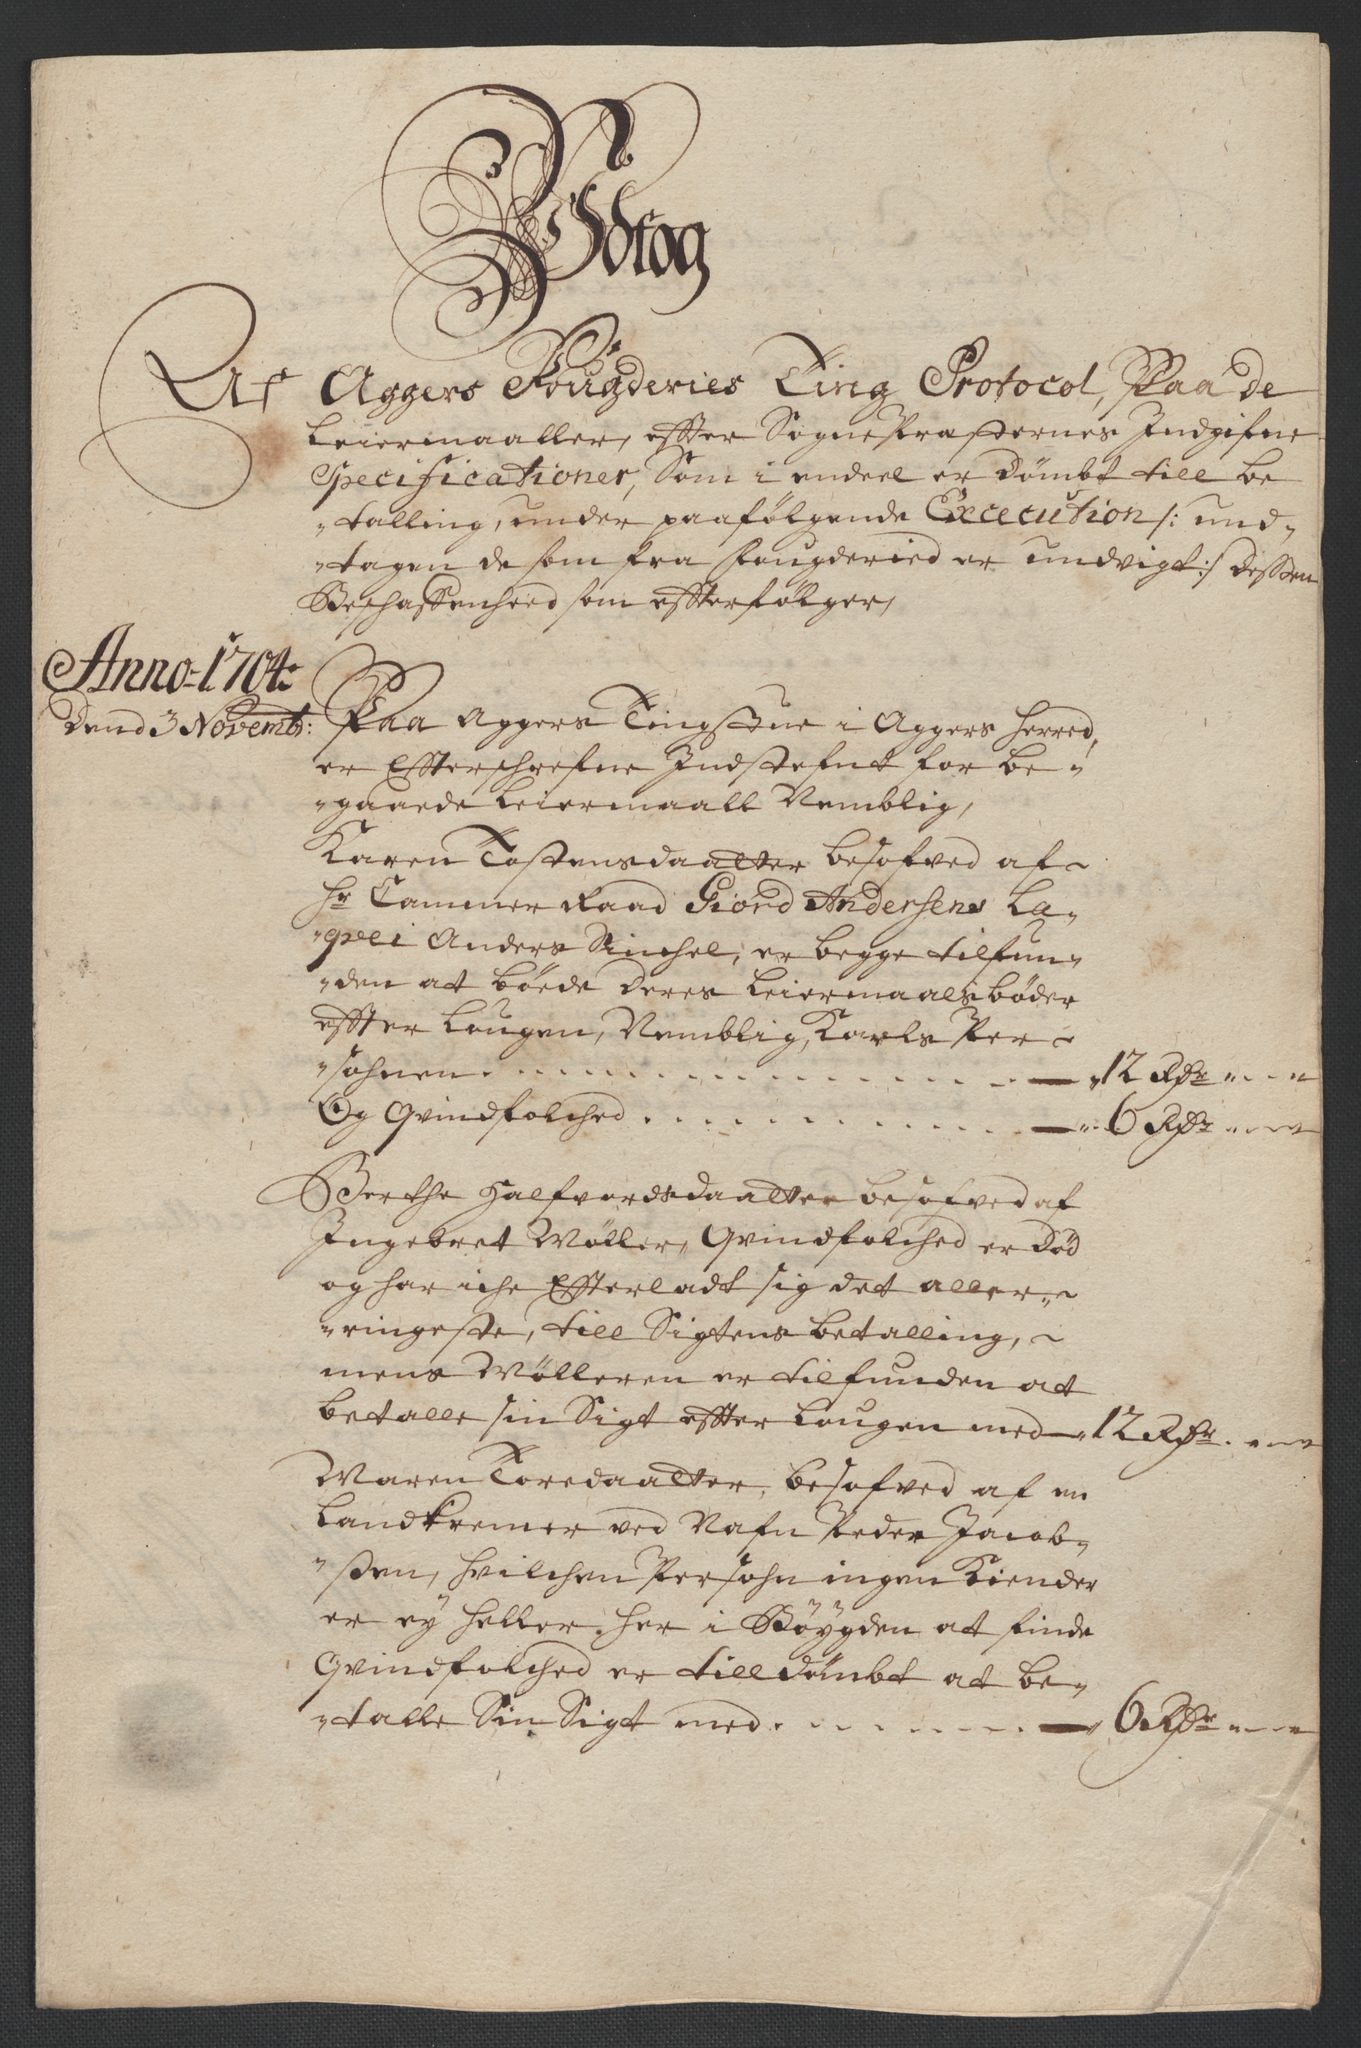 Udtog
Af Aggers Fougderies Ting Protocol, Paa de
Leiermaaller, effter SognePræsternes Indgifne
Specificationer, Som i endeel er Dömbt till be
-talling, under paafølgende Excecution /: und-
-tagen de som fra Fougderied er undvigt :/ dessen
Beschaffenheed som effterfølger,
Anno 1704:
Dend 3 Novembr: Paa Aggers Tingstue i Aggers Herred,
er Effterschrefne Indstefnt for be-
-gaaede Leiermaall Nemblig,
Karen Tostensdaatter besofved af
Hr Cammer Raad Giord Andersens La-
-qvei Anders, er begge tilfun-
-den at böede deres Leiermaalsbøder
effter Lougen, Nemblig, Karls Per-
-sohnen - 12 Rdr
Og Qvindfolched - 6 Rdr
Berthe Halfvordsdaatter besofved af
Ingebret Møller, Qvindfolched er död
og har iche Effterladt sig det aller-
-ringeste, till Sigtens betalling,
mens Mölleren er tilfunden at
betalle sin Sigt effter Lougen med - 12 Rdr
Maren Toresdaatter, besofved af en
Landkremer ved Nafn Peder Jacob-
-sen, hvilchen Persohn ingen Kiender
er ey heller her i Böygden at finde
Qvindfolched er tilldömbt at be-
-talle Sin Sigt med - 6 Rdr